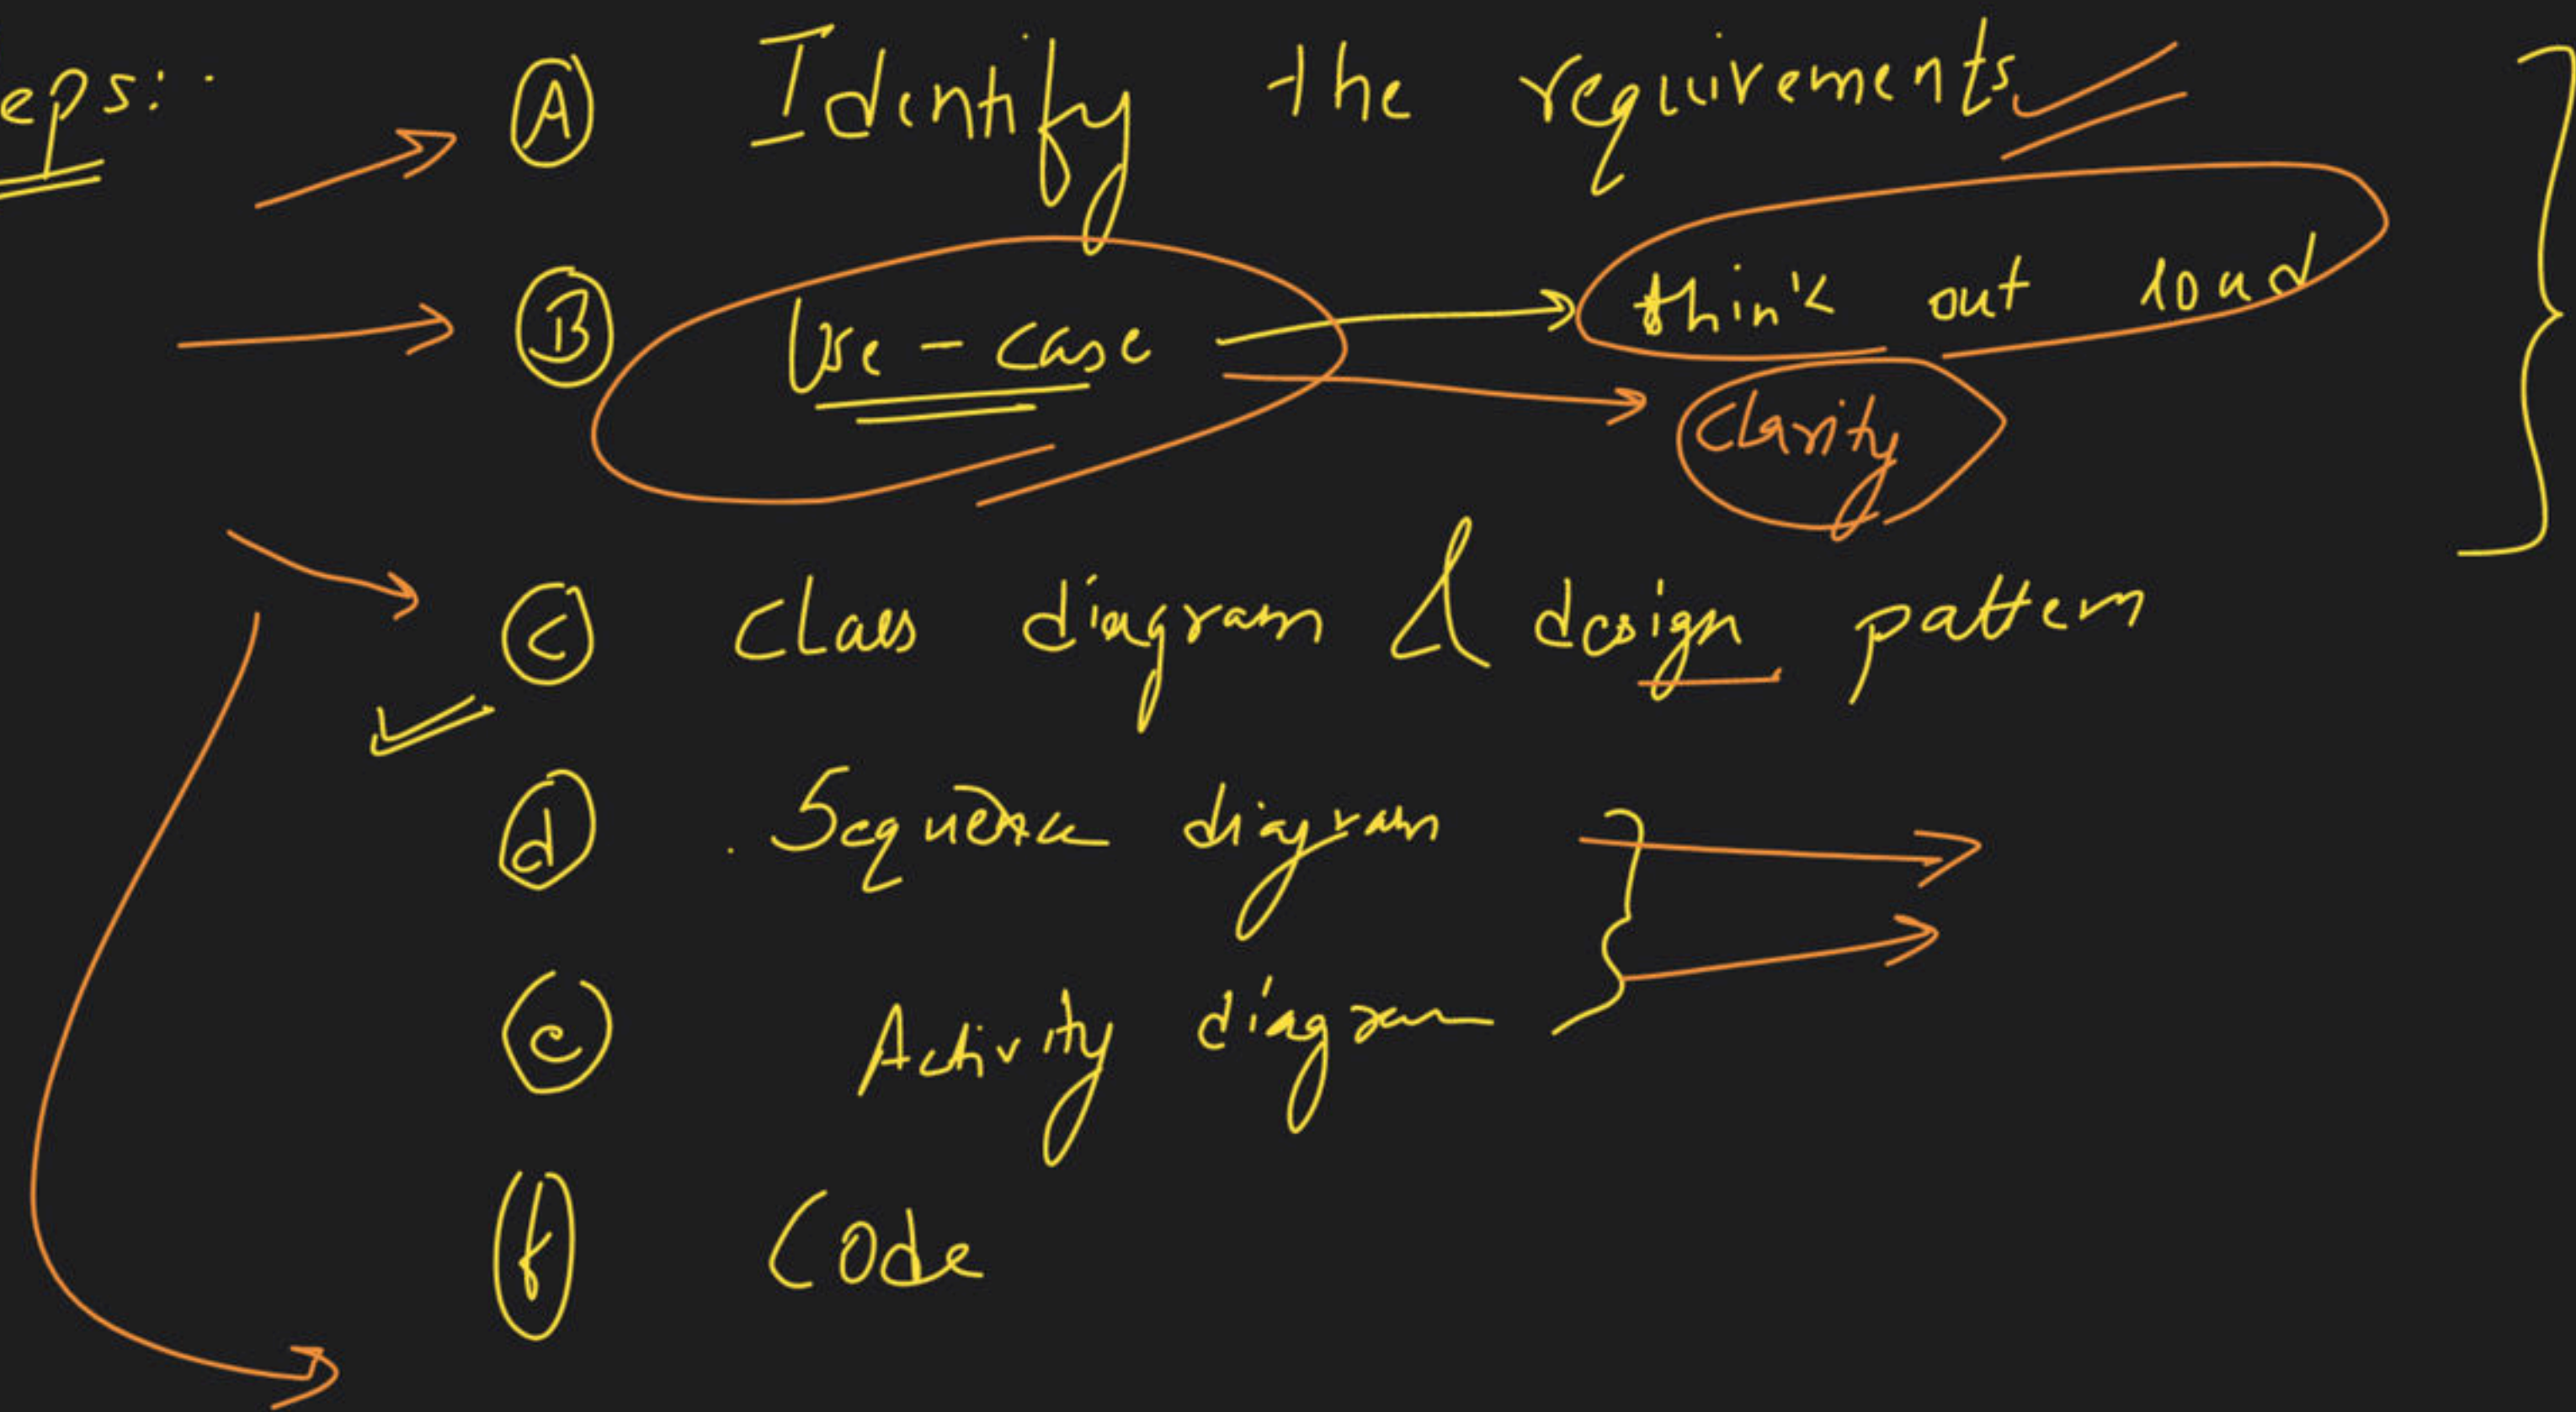 eps:-
Ⓐ Identify the requirements
Ⓑ Use-case → think out loud
→ clarity
Ⓒ Class diagram & design pattern
ⓓ Sequence diagram
ⓔ Activity diagram
ⓕ Code